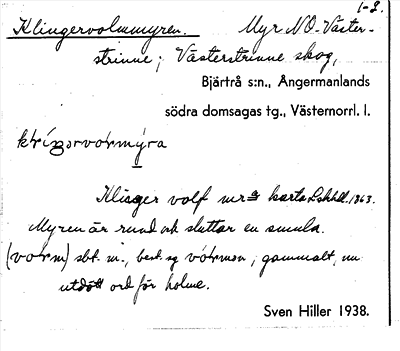 1-2.
Klingervolmmyren. Myr NO. Väster-
strinne; Västerstrinne skog,
Bjärtrå s:n., Ångermanlands
södra domsagas tg., Västernorrl. l.
volm karta 1863.
Myren är rund och sluttar en smula.
(vo̵rm) sbt. m., best. sg vórmen, gammalt, nu
utdött ord för holme.
Sven Hiller 1938.